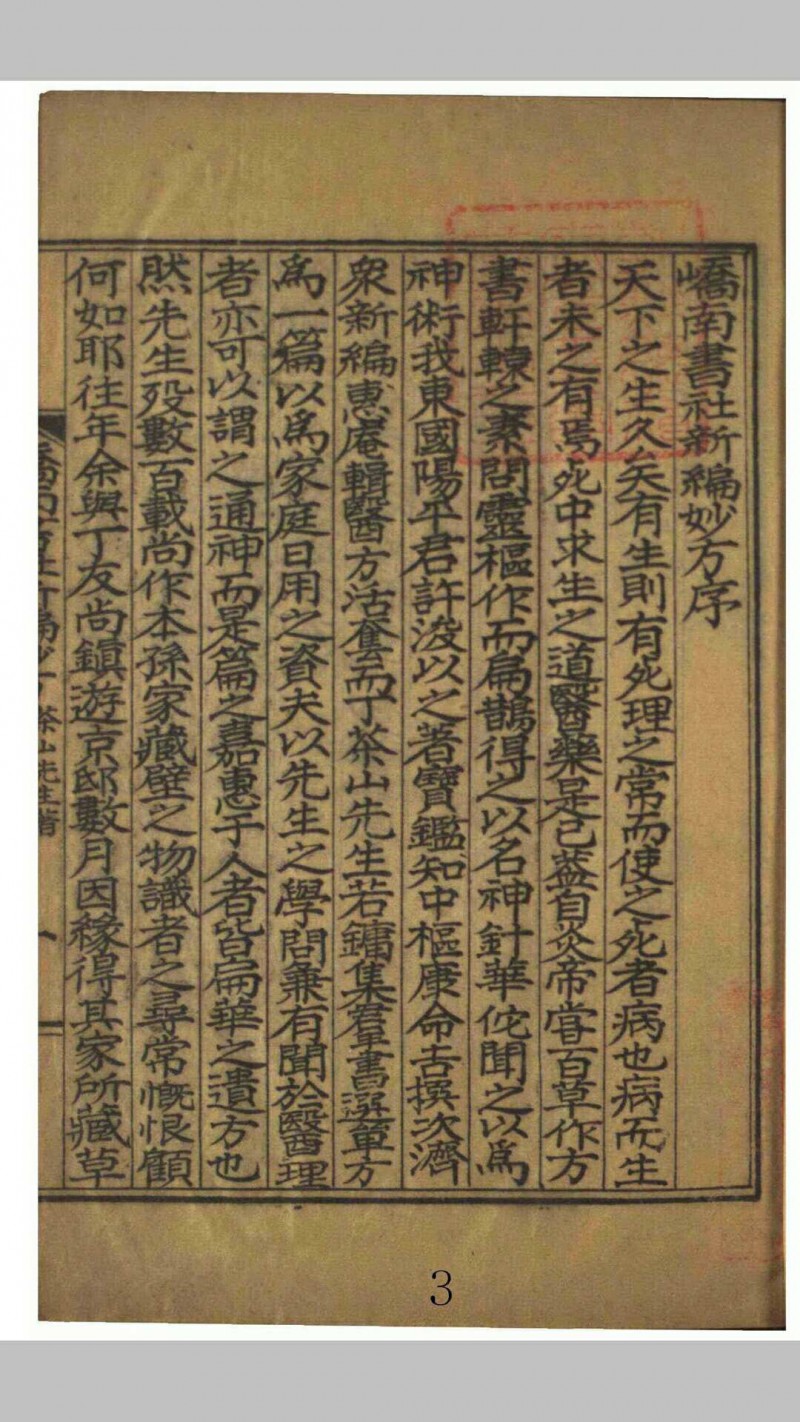 嶠南書社新編妙方序
天下之生久矣有生則有死理之常而使之死者病也病而生
者未之有焉死中求生之道醫藥是已蓋自炎帝嘗百草作方
書軒轅之素問靈樞作而扁鵲得之以名神針華佗聞之以爲
神術我東國陽平君許浚以之著寶鑑知中樞康命吉撰次濟
衆新編惠庵輯醫方活套而丁茶山先生若鏞集羣書選單方
爲一篇以爲家庭日用之資夫以先生之學問兼有聞於醫理
者亦可以謂之通神而是篇之嘉惠于人者皆扁華之遺方也
然先生歿數百載尚作本孫家藏壁之物識者之尋常慨恨顧
何如耶往年余與丁友尚鎮遊京邸數月因緣得其家所藏草
茶山先生著
3